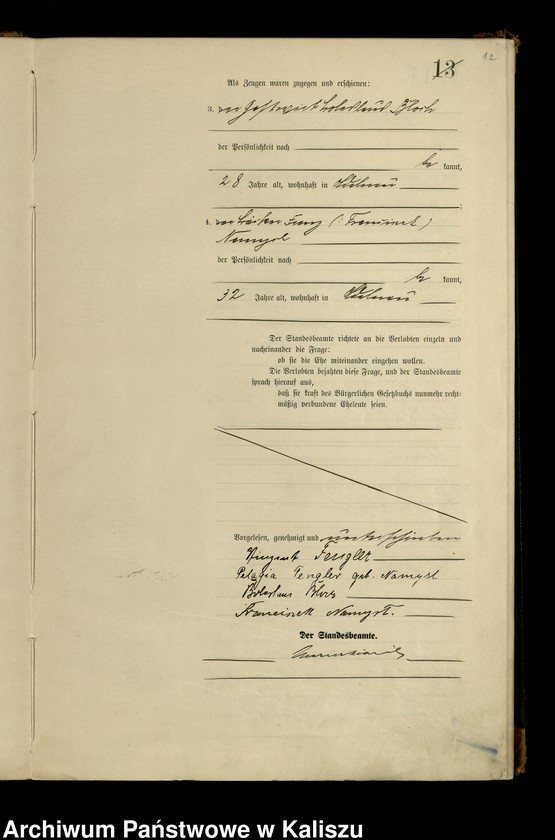 12
13
Als Zeugen waren zugegen und erschienen:
3. der Gastwirt Boleslaus Bloch
der Persönlichkeit nach
be kannt,
28 Jahre alt, wohnhaft in
4. Franz (: Franciszek)
Namysl
der Persönlichkeit nach
be kannt,
32 Jahre alt, wohnhaft in
Der Standesbeamte richtete an die Verlobten einzeln und
nacheinander die Frage:
ob sie die Ehe miteinander eingehen wollen.
Die Verlobten bejahten diese Frage, und der Standesbeamte
sprach hierauf aus,
daß sie kraft des Bürgerlichen Gesetzbuchs nunmehr recht-
mäßig verbundene Eheleute seien.
Vorgelesen, genehmigt und unterschrieben
Fengler
Pelagia Fengler geb. Namysl
Boleslaus
Franciszek Namysl.
Der Standesbeamte.
Archiwum Państwowe w Kaliszu